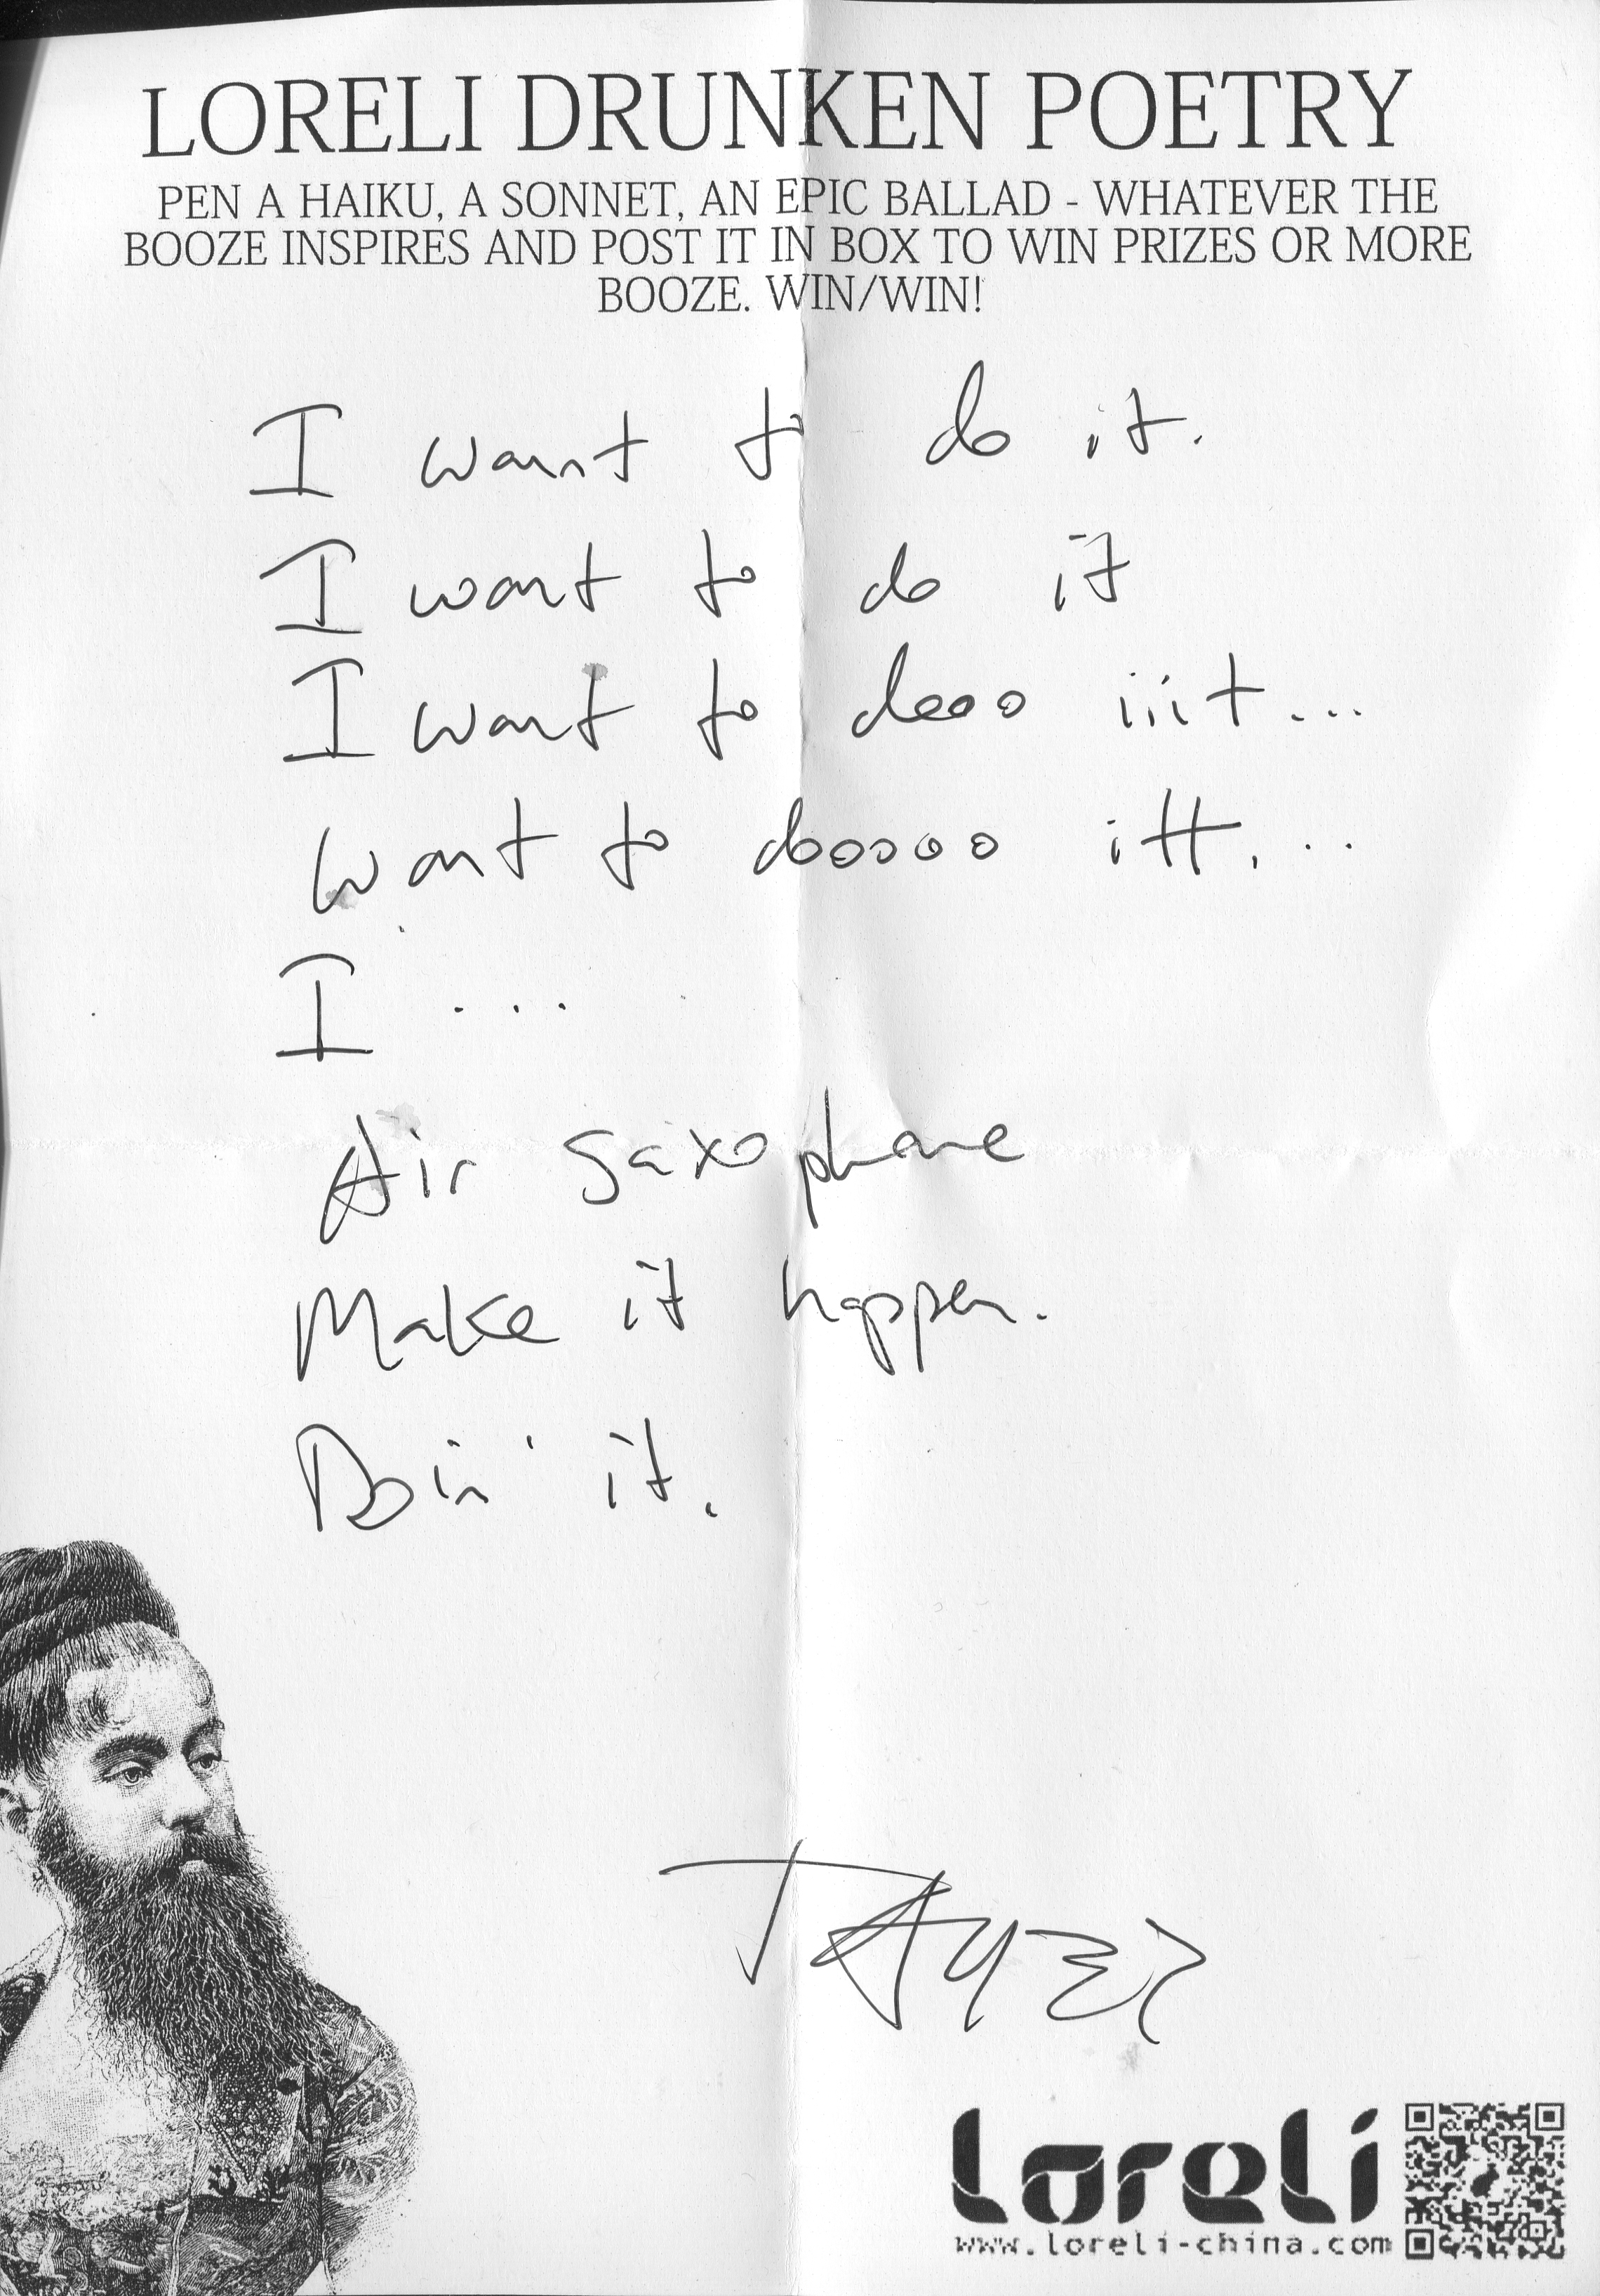 LORELI DRUNKEN POETRY
PEN A HAIKU, A SONNET, AN EPIC BALLAD - WHATEVER THE
BOOZE INSPIRES AND POST IT IN BOX TO WIN PRIZES OR MORE
BOOZE. WIN/WIN!
I want to do it.
I want to do it
I want to dooo iiit...
Want to dooooo itt...
I ...
Air Saxophone
Make it happen.
Doin' it.
Loreli
www.loreli-china.com